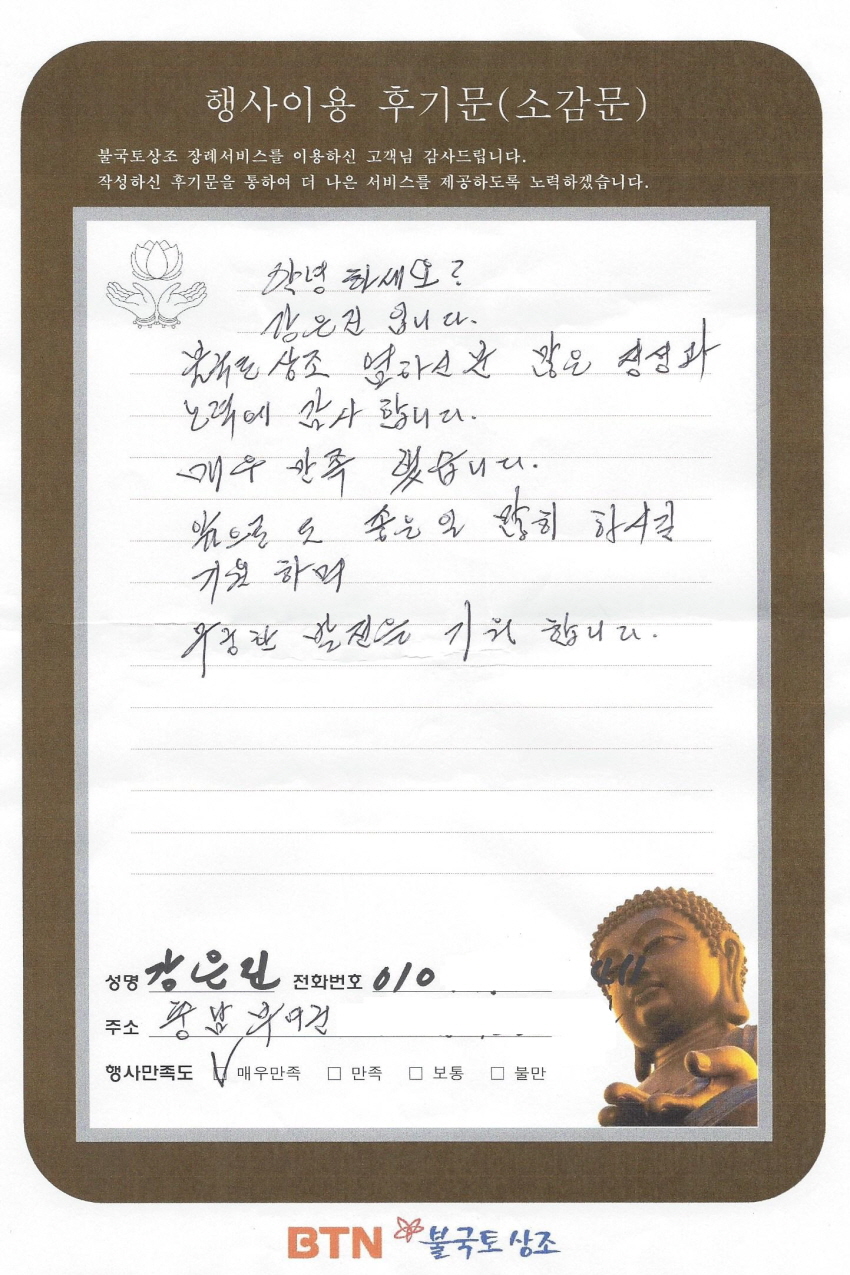 행사이용 후기문(소감문)
불국토상조 장례서비스를 이용하신 고객님 감사드립니다.
작성하신 후기문을 통하여 더 나은 서비스를 제공하도록 노력하겠습니다.
안녕 하세요?
강은진 입니다.
불국토 상조 많은 정성과
노력에 감사 합니다.
매우 만족 했습니다.
앞으로 도 좋은 일 많히 하시길
기원 하며
무궁한 발전을 기원 합니다.
성명 강은진 전화번호 010
주소 충남 부여군
행사만족도 매우만족 만족 보통 불만
BTN 불국토 상조